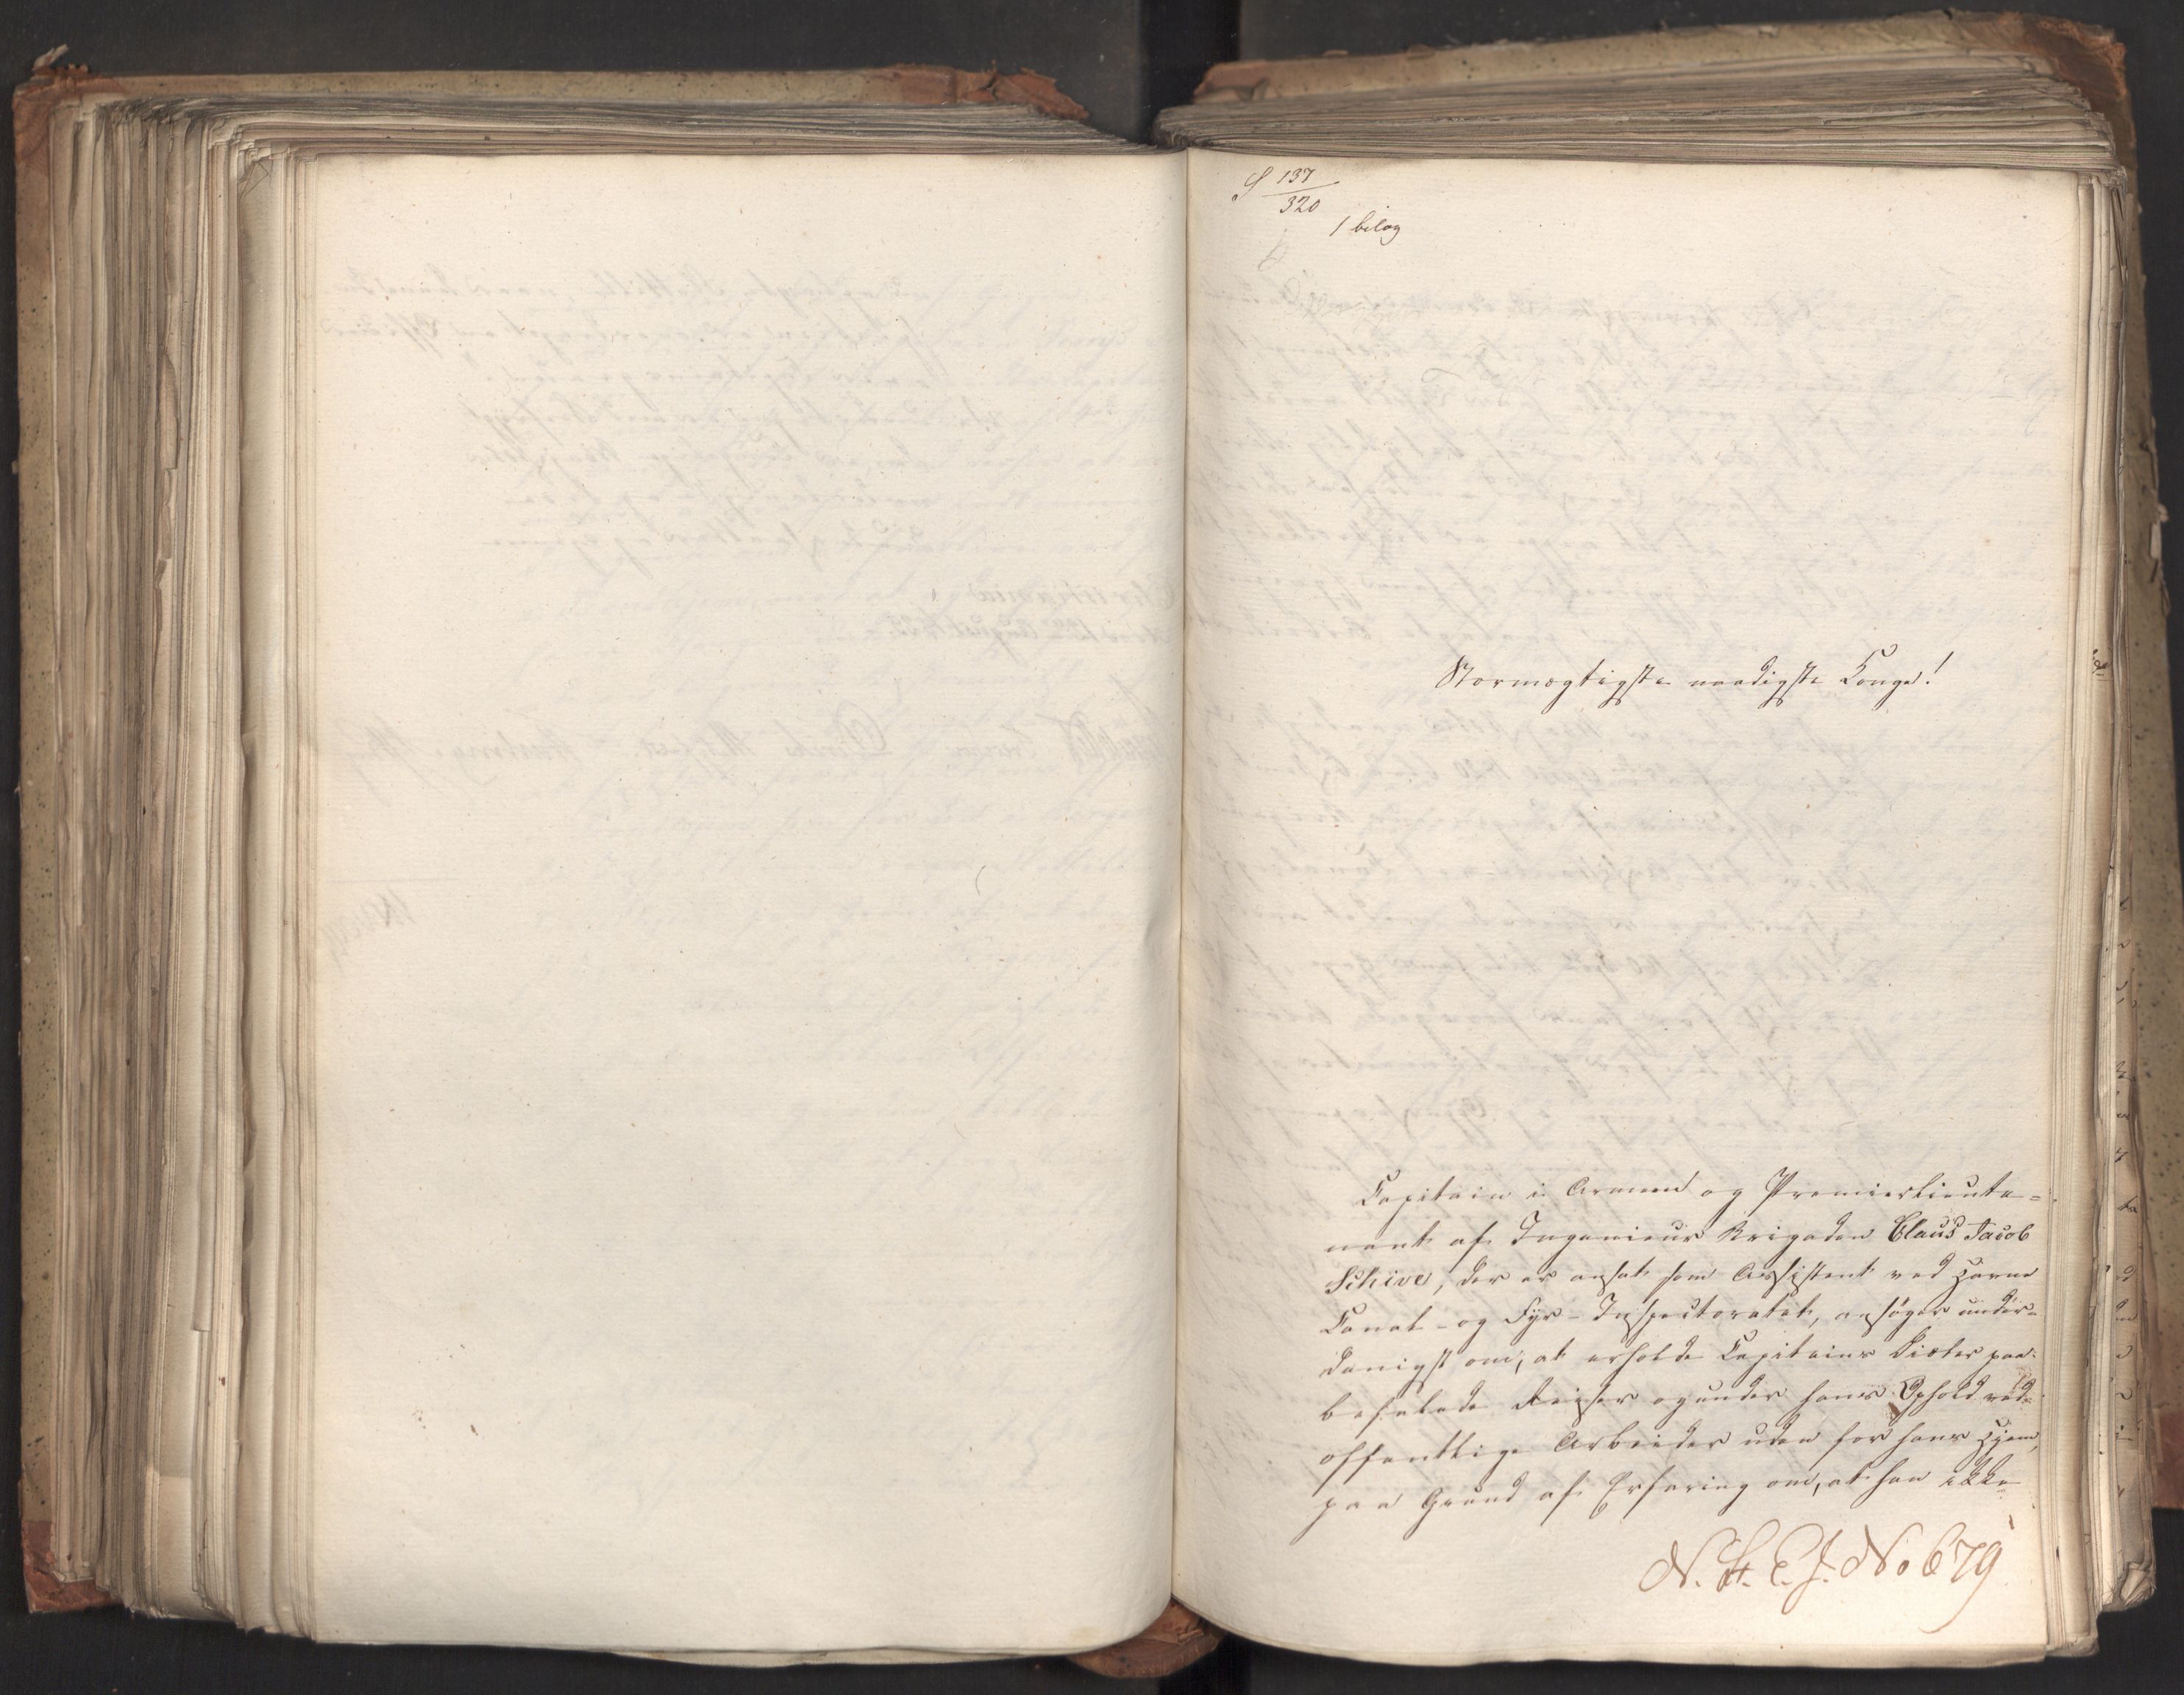 S 137
320
1 bilag
Stormægtigste naadigste Konge!
Capitain i Armeen og Premierlieute=
nant af Ingenieur Brigaden Claus Jacob
Schive, der er ansat som Assistent ved Havne
Canal- og Fyr-Inspectoratet, ansøger under=
danigst om, at erholde Capitains Diæter paa
befalede Reiser og under hans Ophold ved
offentlige Arbeider uden for hans Hjem,
paa Grund af Erfaring om, at han ikke
N. St. E. J. No 679